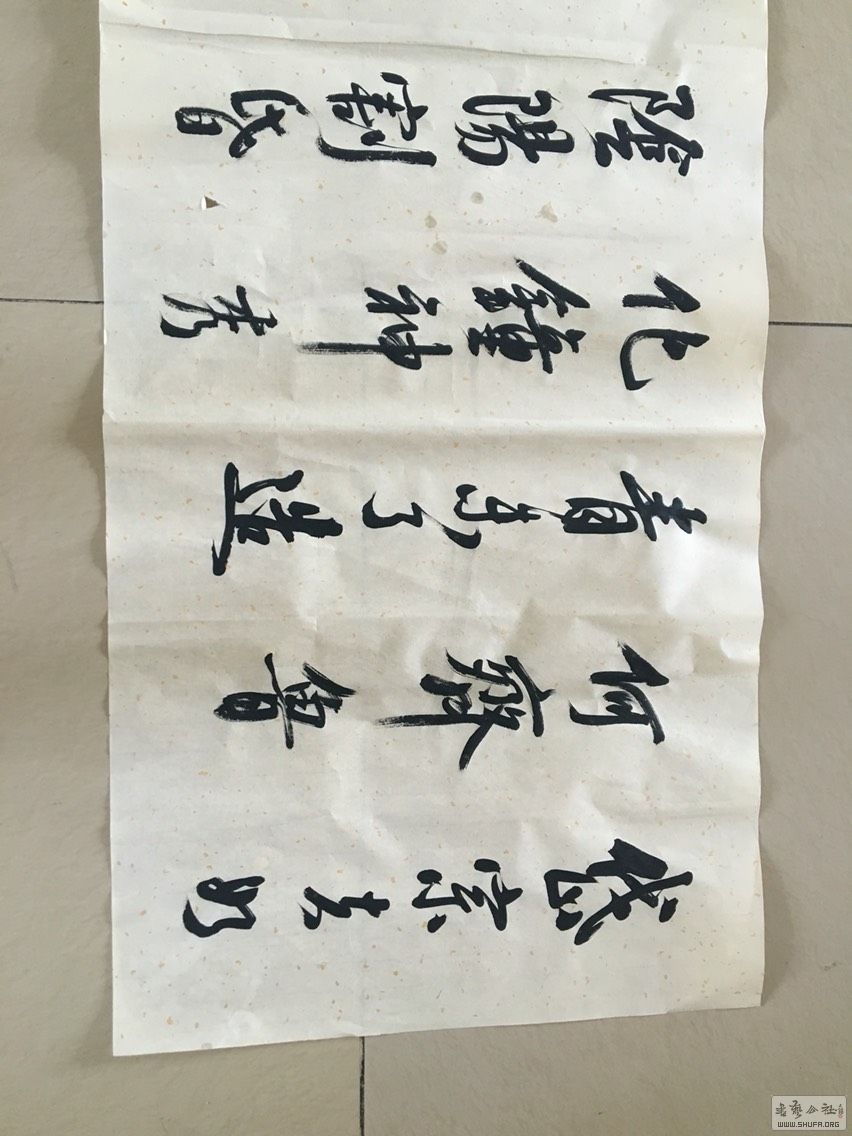 岱宗夫如
何齊魯
青未了造
化鍾神秀
陰陽割昏
書藝公社
WWW.SHUFA.ORG